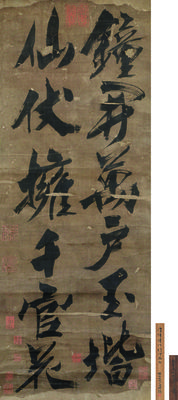 鐘開萬戶玉堦
仙仗擁千官花